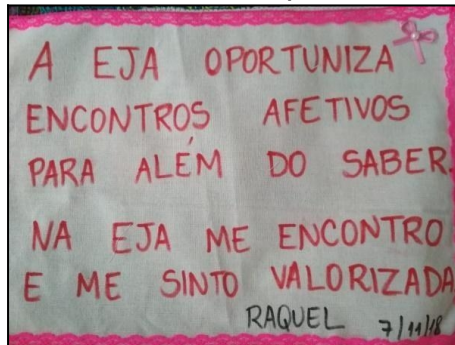 A EJA OPORTUNIZA
ENCONTROS AFETIVOS
PARA ALÉM DO SABER.
NA EJA ME ENCONTRO
E ME SINTO VALORIZADA
RAQUEL 7/11/18